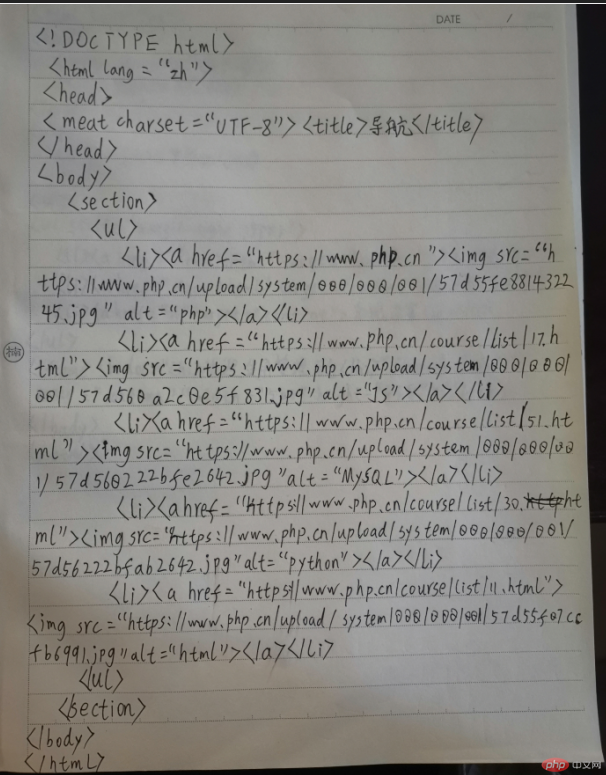 DATE /
<!DOCTYPE html>
<html lang = "zh">
<head>
<meat charset="UTF-8"> <title>导航</title>
</head>
<body>
<section>
<ul>
<li><a href="https://www.php.cn"><img src="h
ttps://www.php.cn/upload/system/000/000/001/57d55fe8814322
45.jpg" alt="php"></a></li>
<li><a href="https://www.php.cn/course/list/17.h
tml"><img src="https://www.php.cn/upload/system/000/000/
001/57d560a2c0e5f831.jpg" alt="JS"></a></li>
<li><a href="https://www.php.cn/course/list/51.ht
ml"><img src="https://www.php.cn/upload/system/000/000/00
1/57d560222bfe2642.jpg" alt="MySQL"></a></li>
<li><a href="https://www.php.cn/course/list/30.ht
ml"><img src="https://www.php.cn/upload/system/000/000/001/
57d56222bfab2642.jpg" alt="python"></a></li>
<li><a href="https://www.php.cn/course/list/11.html">
<img src="https://www.php.cn/upload/system/000/000/001/57d55f07cc
fb6991.jpg" alt="html"></a></li>
</ul>
</section>
</body>
</html>
php 中文网